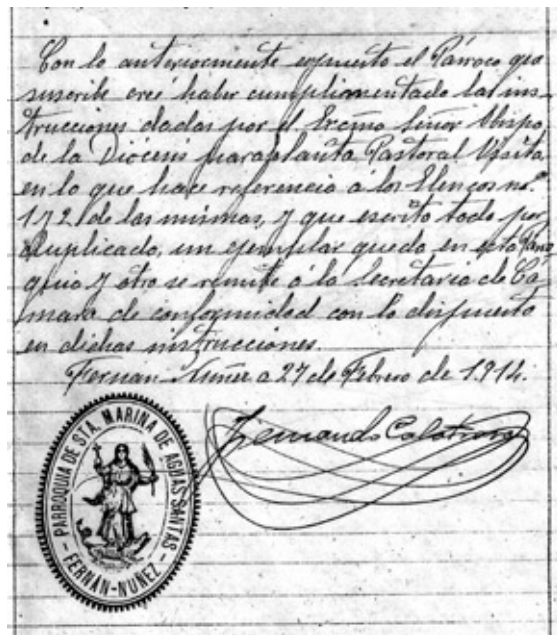 Con lo anteriormente expuesto el Párroco que
suscribe cree haber cumplimentado las ins-
trucciones dadas por el Excmo Señor Obispo
de la Diócesis para la Santa Pastoral Visita,
en lo que hace referencia á los Elencos nos.
1 y 2 de las mismas, y que escrito todo por
duplicado, un ejemplar queda en esta Parro-
quia y otro se remite á la Secretaria de Cá-
mara de conformidad con lo dispuesto
en dichas instrucciones.
Fernan-Nuñez a 27 de Febrero de 1.914.
Fernando
PARROQUIA DE STA. MARINA DE AGUAS SANTAS
- FERNÁN-NUÑEZ -